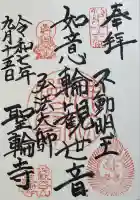 奉拝
不動明王
如意輪観世音
弘法大師
聖輪寺
令和七年
九月十五日